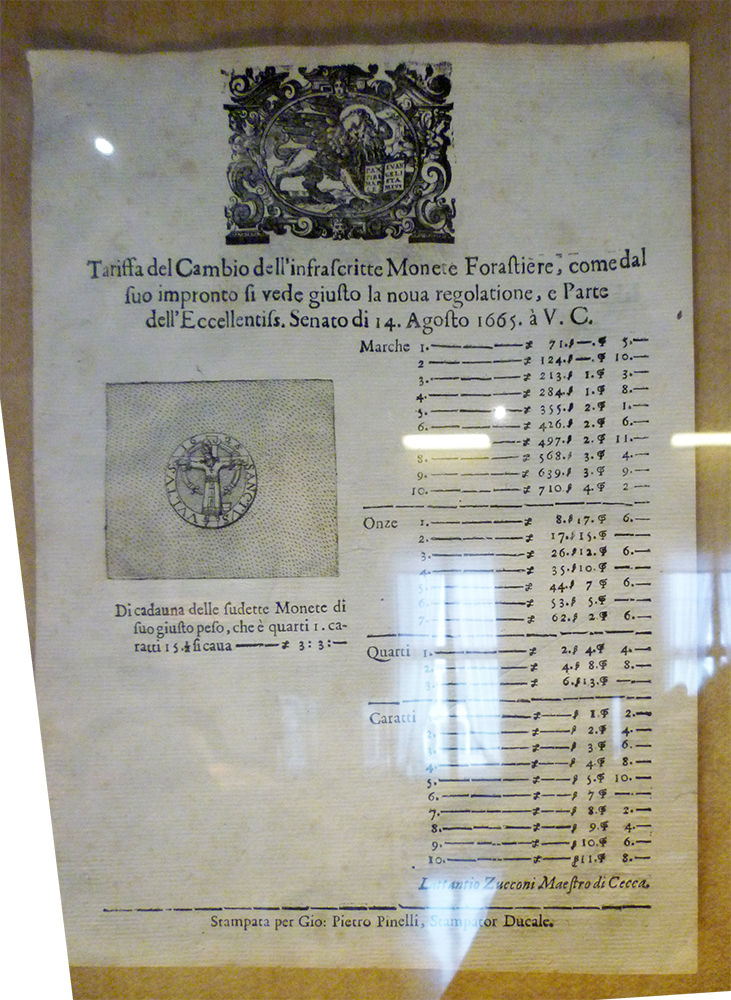 PAX EVAN
TIBI GELI
MAR STA
CE MEVS
Tariffa del Cambio dell'infraſcritte Monete Foraſtiere, come dal
ſuo impronto ſi vede giuſto la noua regolatione, e Parte
dell'Eccellentiſs. Senato di 14. Agoſto 1665. à V. C.
SANCTVS VVLTVS
Di cadauna delle ſudette Monete di
ſuo giuſto peſo, che è quarti 1. ca-
ratti 15.½ ſi caua —— ≠ 3: 3:—
Marche 1. —— ≠ 71.ſ —.₽ 5.—
2 —— ≠ 124.ſ —.₽ 10.—
3. —— ≠ 213.ſ 1.₽ 3.—
4. —— ≠ 284.ſ 1.₽ 8.—
5. —— ≠ 355.ſ 2.₽ 1.—
6. —— ≠ 426.ſ 2.₽ 6.—
—— ≠ 497.ſ 2.₽ 11.—
8. —— ≠ 568.ſ 3.₽ 4.—
9. —— ≠ 639.ſ 3.₽ 9.—
10. —— ≠ 710.ſ 4.₽ 2 —
Onze 1. —— ≠ 8.ſ 17.₽ 6.—
2. —— ≠ 17.ſ 15.₽ —
3. —— ≠ 26.ſ 12.₽ 6.—
4. —— ≠ 35.ſ 10.₽ —
5. —— ≠ 44.ſ 7 ₽ 6.—
6. —— ≠ 53.ſ 5.₽ —
7. —— ≠ 62.ſ 2.₽ 6.—
Quarti 1. —— ≠ 2.ſ 4.₽ 4.—
2. —— ≠ 4.ſ 8.₽ 8.—
3. —— ≠ 6.ſ 13.₽ —
Caratti —— ≠ — ſ 1.₽ 2.—
2. —— ≠ — ſ 2.₽ 4.—
3. —— ≠ — ſ 3 ₽ 6.—
4. —— ≠ — ſ 4.₽ 8.—
5. —— ≠ — ſ 5.₽ 10.—
6. —— ≠ — ſ 7 ₽ —
7. —— ≠ — ſ 8.₽ 2.—
8. —— ≠ — ſ 9.₽ 4.—
9. —— ≠ — ſ 10.₽ 6.—
10. —— ≠ — ſ 11.₽ 8.—
Lattantio Zucconi Maeſtro di Cecca.
Stampata per Gio: Pietro Pinelli, Stampator Ducale.